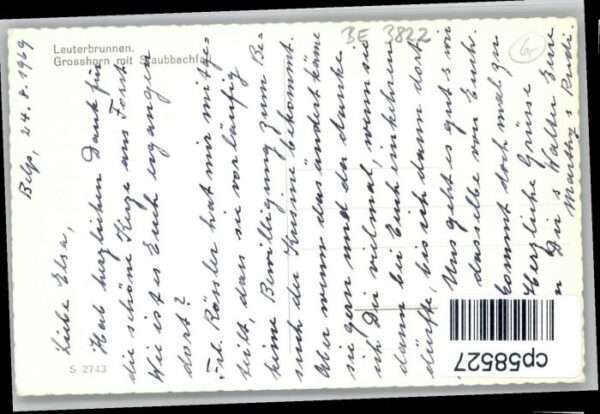 Lauterbrunnen.
Grosshorn mit Staubbachfall
BE 3822
6.-
Belp, 24.8.1969
Liebe Elsa,
Hab herzlichen Dank für
die schöne Karte aus Fort
Wie ist es Euch ergangen
dort?
Frl. Rössler hat mir mitge-
teilt, dass sie vorläufig
keine Bewilligung zum Be-
such der Kusine bekommt.
Aber wenn das ändert käme
sie gern und da danke
ich Dir vielmal, wenn sie
dann bei Euch einkehren
dürfte, bis ich dann dort
Uns geht es gut & wir
dasselbe von Euch.
kommt doch mal zu
Herzliche Grüsse
Dir & Walter Eure
Marthy & Rudi.
S 2743
cp58527